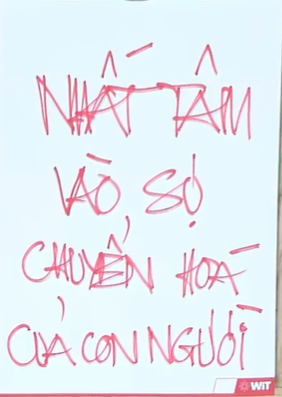 NHẤT TÂM
VÀO SỢ
CHUYỂN HOÁ
CUẢ CON NGƯỜI
WIT